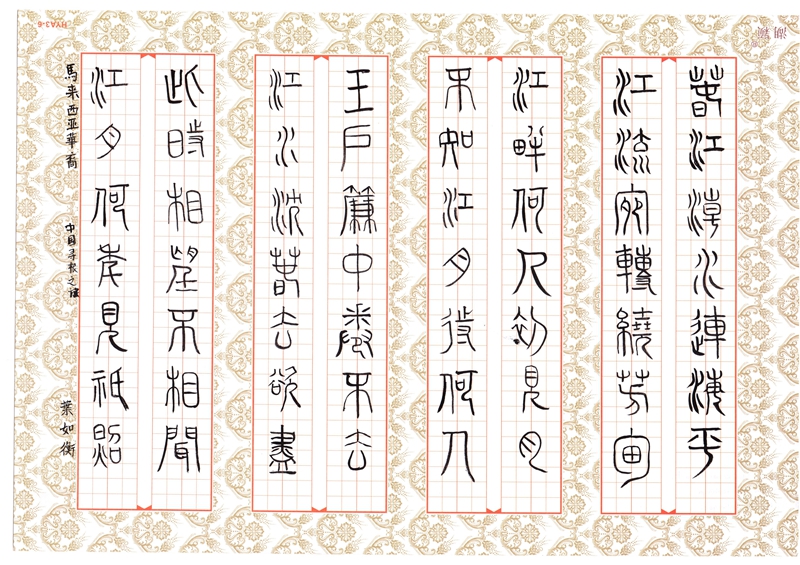 春江潮水連海平
江流宛轉繞芳甸
江畔何人初見月
不知江月待何人
玉戶簾中卷不去
江水流春去欲盡
此時相望不相聞
江月何年見祇照
馬来西亞華裔 中国寻根之旅 葉如衡
HYA3-6